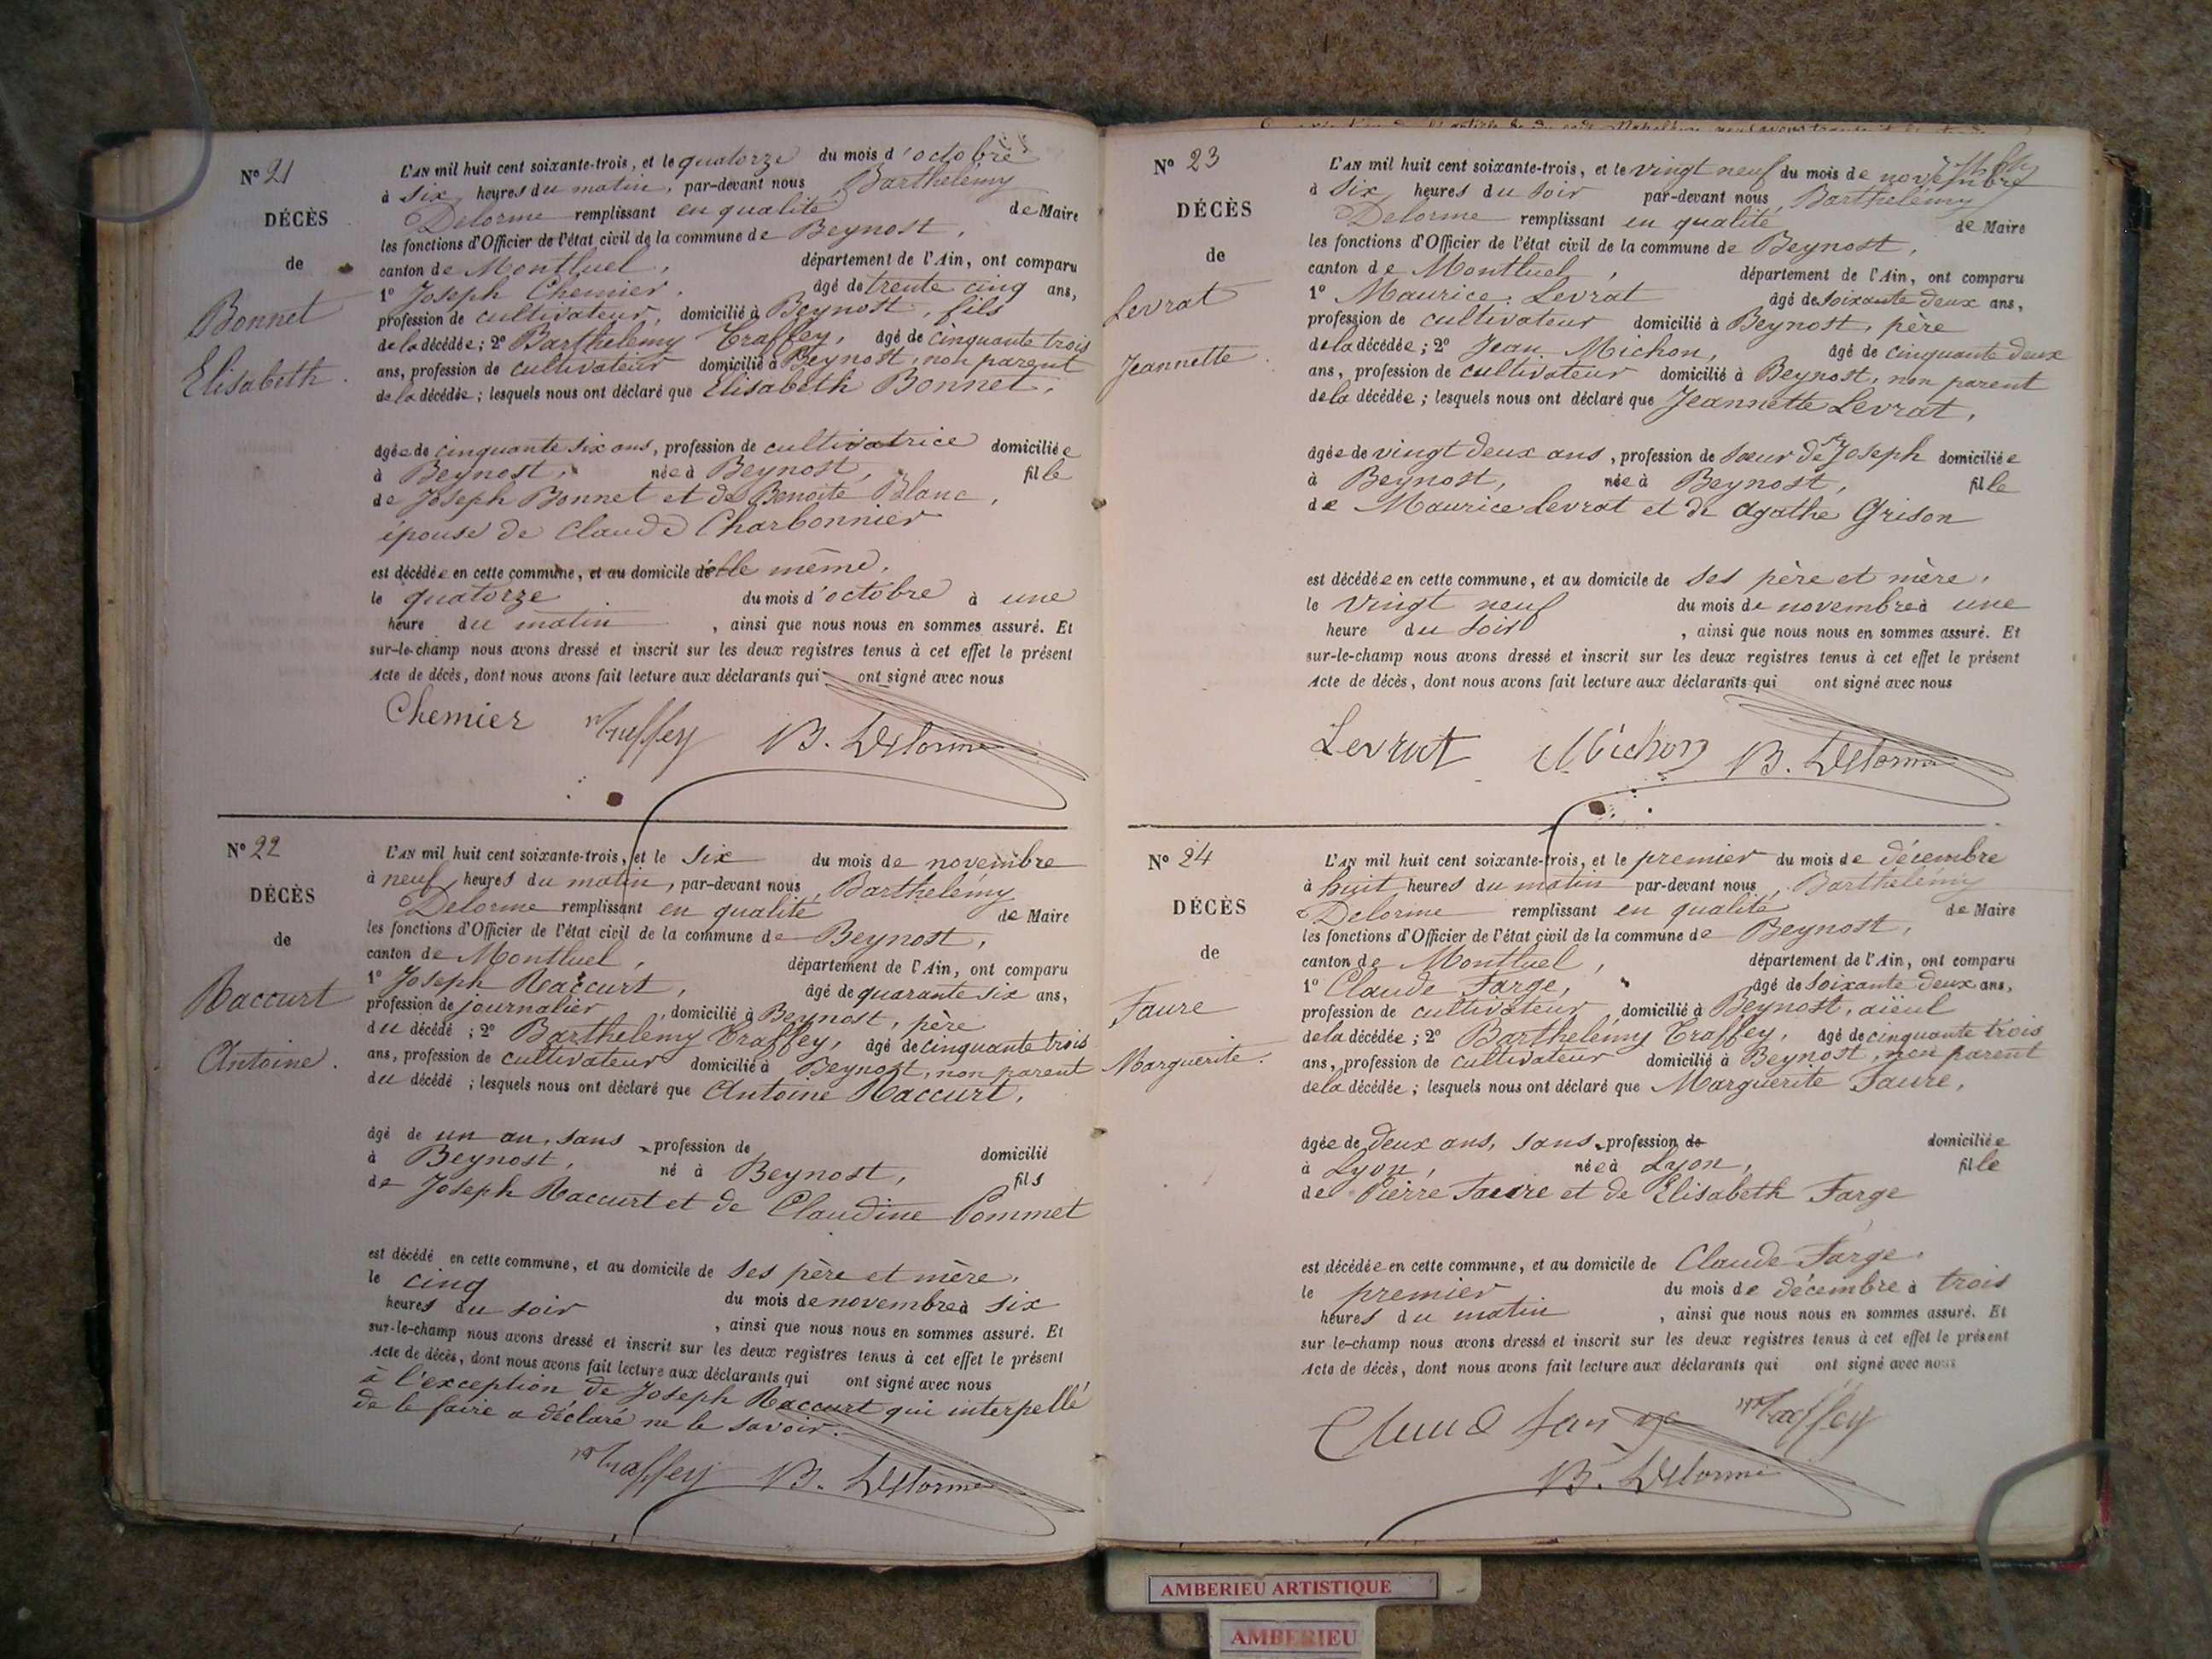 N° 21
DÉCÈS
de
Bonnet
Elisabeth.
L'AN mil huit cent soixante-trois, et le quatorze du mois d'octobre
à six heures du matin, par-devant nous Barthélemy
Delorme remplissant en qualité de Maire
les fonctions d'Officier de l'état civil de la commune de Beynost,
canton de Montluel, département de l'Ain, ont comparu
1° Joseph Chemier, âgé de trente cinq ans,
profession de cultivateur, domicilié à Beynost, fils
de la décédée; 2° Barthelemy Traffey, âgé de cinquante trois
ans, profession de cultivateur domicilié à Beynost, non parent
de la décédée; lesquels nous ont déclaré que Elisabeth Bonnet,
âgée de cinquante six ans, profession de cultivatrice domiciliée
à Beynost, née à Beynost, fille
de Joseph Bonnet et de Benoite Blanc,
épouse de Claude Charbonnier
est décédée en cette commune, et au domicile d'elle même,
le quatorze du mois d'octobre à une
heure du matin, ainsi que nous nous en sommes assuré. Et
sur-le-champ nous avons dressé et inscrit sur les deux registres tenus à cet effet le présent
Acte de décès, dont nous avons fait lecture aux déclarants qui ont signé avec nous
Chemier Traffey B. Delorme
N° 22
DÉCÈS
de
Raccurt
Antoine.
L'AN mil huit cent soixante-trois, et le six du mois de novembre
à neuf heures du matin, par-devant nous, Barthélemy
Delorme remplissant en qualité de Maire
les fonctions d'Officier de l'état civil de la commune de Beynost,
canton de Montluel, département de l'Ain, ont comparu
1° Joseph Raccurt, âgé de quarante six ans,
profession de journalier, domicilié à Beynost, père
du décédé; 2° Barthelemy Traffey, âgé de cinquante trois
ans, profession de cultivateur domicilié à Beynost, non parent
du décédé; lesquels nous ont déclaré que Antoine Raccurt,
âgé de un an, sans profession de domicilié
à Beynost, né à Beynost, fils
de Joseph Raccurt et de Claudine Pommet
est décédé en cette commune, et au domicile de ses père et mère,
le cinq du mois de novembre à six
heures du soir, ainsi que nous nous en sommes assuré. Et
sur-le-champ nous avons dressé et inscrit sur les deux registres tenus à cet effet le présent
Acte de décès, dont nous avons fait lecture aux déclarants qui ont signé avec nous
à l'exception de Joseph Raccurt qui interpellé
de le faire a déclaré ne le savoir.
Traffey B. Delorme
N° 23
DÉCÈS
de
Levrat
Jeannette.
L'AN mil huit cent soixante-trois, et le vingt neuf du mois de novembre
à six heures du soir par-devant nous, Barthélemy
Delorme remplissant en qualité de Maire
les fonctions d'Officier de l'état civil de la commune de Beynost,
canton de Montluel, département de l'Ain, ont comparu
1° Maurice Levrat âgé de soixante deux ans,
profession de cultivateur domicilié à Beynost, père
de la décédée; 2° Jean Michon, âgé de cinquante deux
ans, profession de cultivateur domicilié à Beynost, non parent
de la décédée; lesquels nous ont déclaré que Jeannette Levrat,
âgée de vingt deux ans, profession de sœur de St Joseph domiciliée
à Beynost, née à Beynost, fille
de Maurice Levrat et de Agathe Grison
est décédée en cette commune, et au domicile de ses père et mère,
le vingt neuf du mois de novembre à une
heure du soir, ainsi que nous nous en sommes assuré. Et
sur-le-champ nous avons dressé et inscrit sur les deux registres tenus à cet effet le présent
Acte de décès, dont nous avons fait lecture aux déclarants qui ont signé avec nous
Levrat Michon B. Delorme
N° 24
DÉCÈS
de
Faure
Marguerite.
L'AN mil huit cent soixante-trois, et le premier du mois de décembre
à huit heures du matin par-devant nous, Barthélemy
Delorme remplissant en qualité de Maire
les fonctions d'Officier de l'état civil de la commune de Beynost,
canton de Montluel, département de l'Ain, ont comparu
1° Claude Farge, âgé de soixante deux ans,
profession de cultivateur domicilié à Beynost, aïeul
de la décédée; 2° Barthélemy Traffey, âgé de cinquante trois
ans, profession de cultivateur domicilié à Beynost, non parent
de la décédée; lesquels nous ont déclaré que Marguerite Faure,
âgée de deux ans, sans profession de domiciliée
à Lyon, née à Lyon, fille
de Pierre Faure et de Elisabeth Farge
est décédée en cette commune, et au domicile de Claude Farge,
le premier du mois de décembre à trois
heures du matin, ainsi que nous nous en sommes assuré. Et
sur le-champ nous avons dressé et inscrit sur les deux registres tenus à cet effet le présent
Acte de décès, dont nous avons fait lecture aux déclarants qui ont signé avec nous
Claude Farge Traffey
B. Delorme
AMBERIEU ARTISTIQUE
AMBERIEU